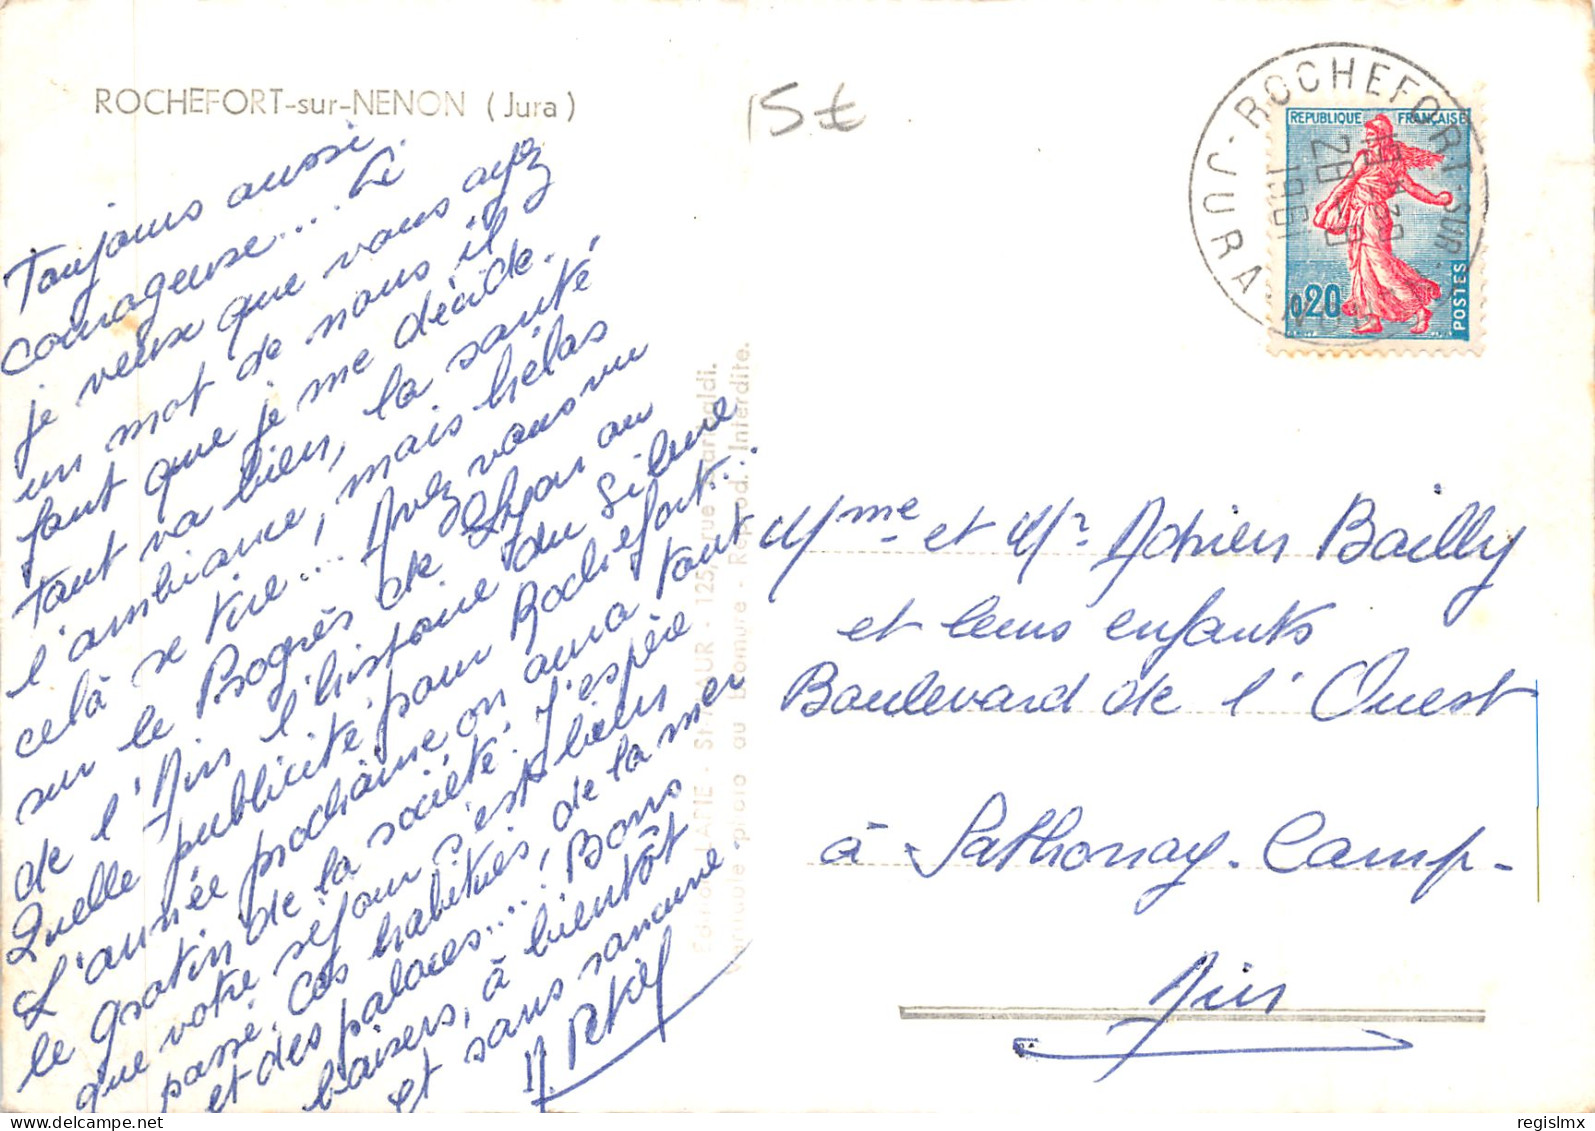 ROCHEFORT-sur-NENON (Jura)
15€
Toujours aussi
courageuse.... Si
je veux que vous ayez
un mot de nous il
faut que je me décide.
Tant va bien, la santé,
l'ambiance, mais hélas
celà se tire.... Avez vous vu
sur le Progrès de Lyon ou
de l'Ain l'histoire du Silure
Quelle publicité pour Rochefort...
L'année prochaine on aura tout
le gratin de la société. J'espère
que votre séjour s'est bien
passé. Ces habitués, de la mer
et des palaces.... Bons
baisers, à bientôt
et sans rancune
Édition LAPIE - St-MAUR - 125, rue Garibaldi.
Véritable photo au Bromure - Reprod. Interdite.
JURA - ROCHEFORT-SUR-NENON
1961
REPUBLIQUE FRANÇAISE
0,20
POSTES
Mme et Mr Adrien Bailly
et leurs enfants
Boulevard de l'Ouest
à Sathonay-Camp-
Ain
regislmx